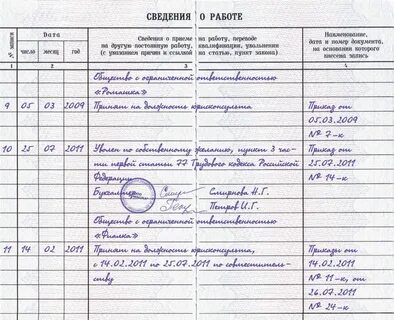 СВЕДЕНИЯ О РАБОТЕ
№ записи
Дата
Сведения о приеме на работу, переводе
на другую постоянную работу, квалификации, увольнении
(с указанием причин и ссылкой на статью, пункт закона)
Наименование,
дата и номер документа,
на основании которого
внесена запись
число
месяц
год
1
2
3
4
Общество с ограниченной ответственностью
«Ромашка»
9 05 03 2009 Принят на должность юрисконсульта Приказ от
05.03.2009
№ 7-к
10 25 07 2011 Уволен по собственному желанию, пункт 3 час-
ти первой статьи 77 Трудового кодекса Российской
Федерации
Приказ от
25.07.2011
№ 14-к
Бухгалтер Смирнова Н.Г.
Петров И.Г.
Общество с ограниченной ответственностью
«Фиалка»
11 14 02 2011 Принят на должность юрисконсульта,
с 14.02.2011 по 25.07.2011 по совместитель-
ству
Приказы от
14.02.2011
№ 11-к, от
26.07.2011
№ 24-к